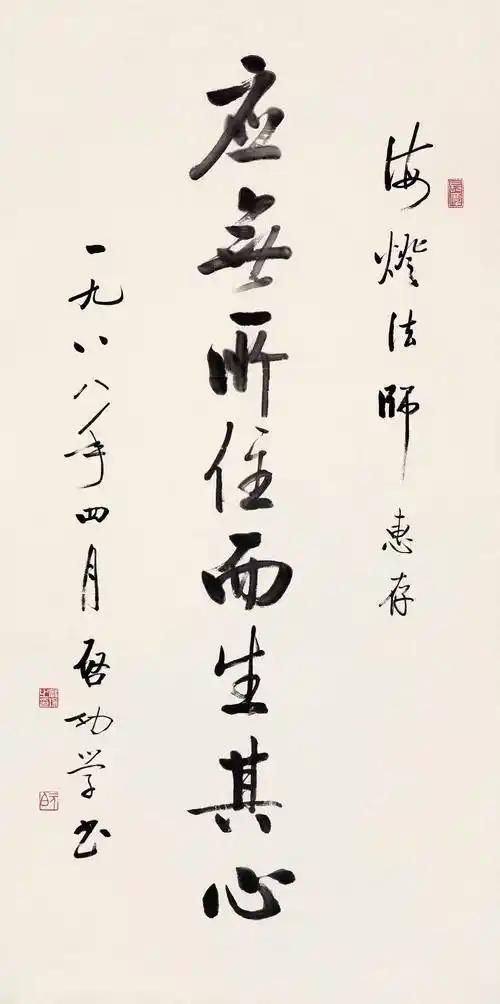 海燈法師惠存
应無所住而生其心
一九八八年四月啓功学书